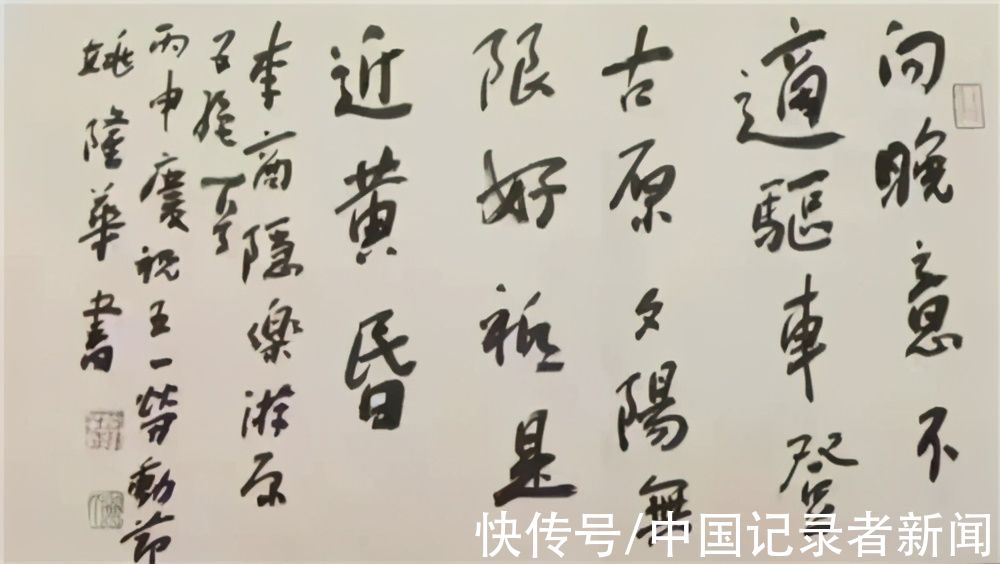 向晚意不
適驅車登
古原夕陽無
限好祗是
近黄昏
李商隱樂游原
絶一首
丙申慶祝五一勞動節
姚隆華書
快传号/中国记录者新闻